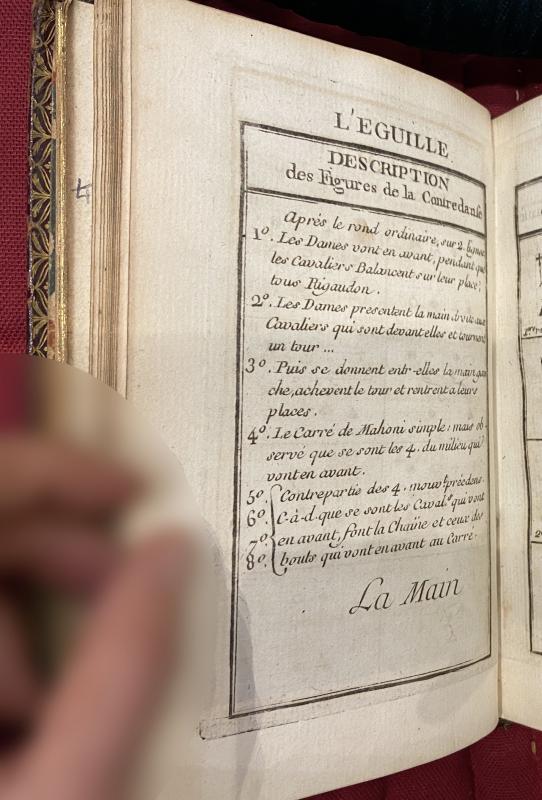 L'EGUILLE
DESCRIPTION
des Figures de la Contredanse
Aprés le rond ordinaire, sur 2. lignes
1º. Les Dames vont en avant, pendant que
les Cavaliers Balancent sur leur place,
tous Rigaudon.
2º. Les Dames presentent la main droite aux
Cavaliers qui sont devant elles et tournent
un tour ...
3º. Puis se donnent entr-elles la main gau
che, achevent le tour et rentrent a leurs
places.
4º. Le Carré de Mahoni simple: mais ob-
servé que se sont les 4. du milieu qui
vont en avant.
5º. Contrepartie des 4. mouvts précédens.
6º. C-à-d. que se sont les Caval.rs qui vont
7º. en avant, font la Chaîne et ceux des
8º. bouts qui vont en avant au Carré.
La Main